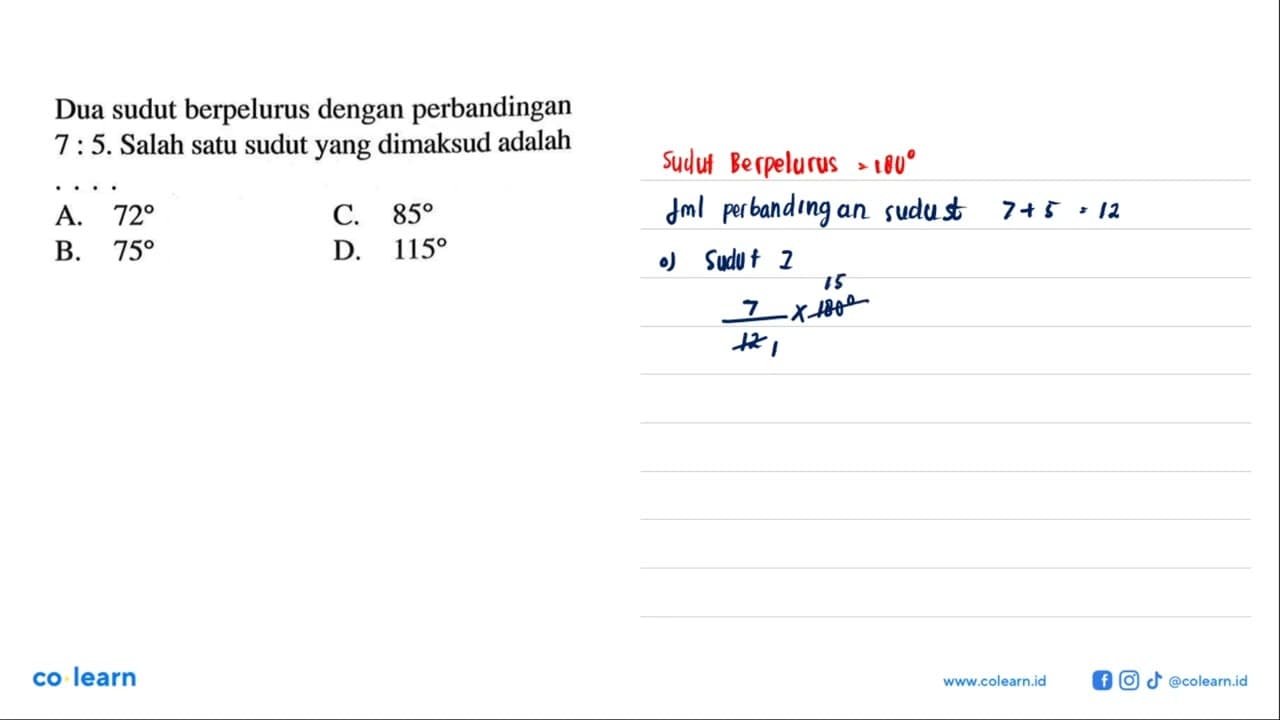 Dua sudut berpelurus dengan perbandingan
7 : 5. Salah satu sudut yang dimaksud adalah
. . . .
A. 72° C. 85°
B. 75° D. 115°
Sudut Berpelurus = 180°
Jml perbandingan sudust 7 + 5 = 12
•) Sudut I
15
7 x 180°
12 1
co learn
www.colearn.id @colearn.id